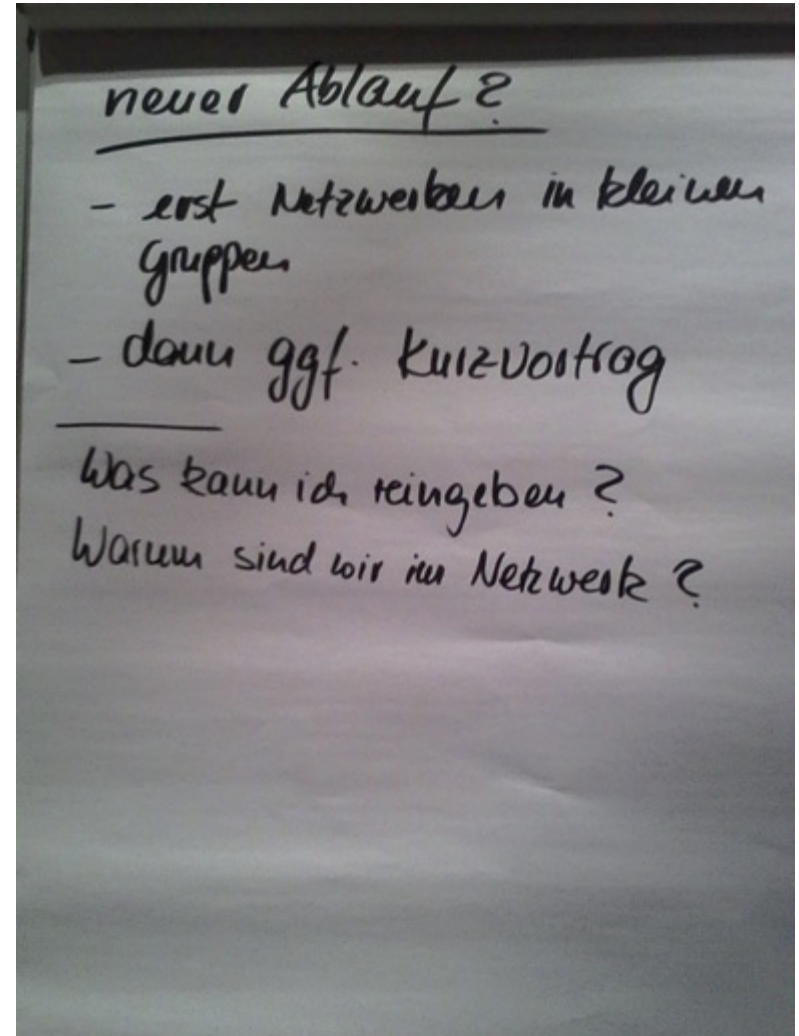 neuer Ablauf?
- erst Netzwerken in kleinen
Gruppen
- dann ggf. Kurzvortrag
Was kann ich reingeben?
Warum sind wir im Netzwerk?